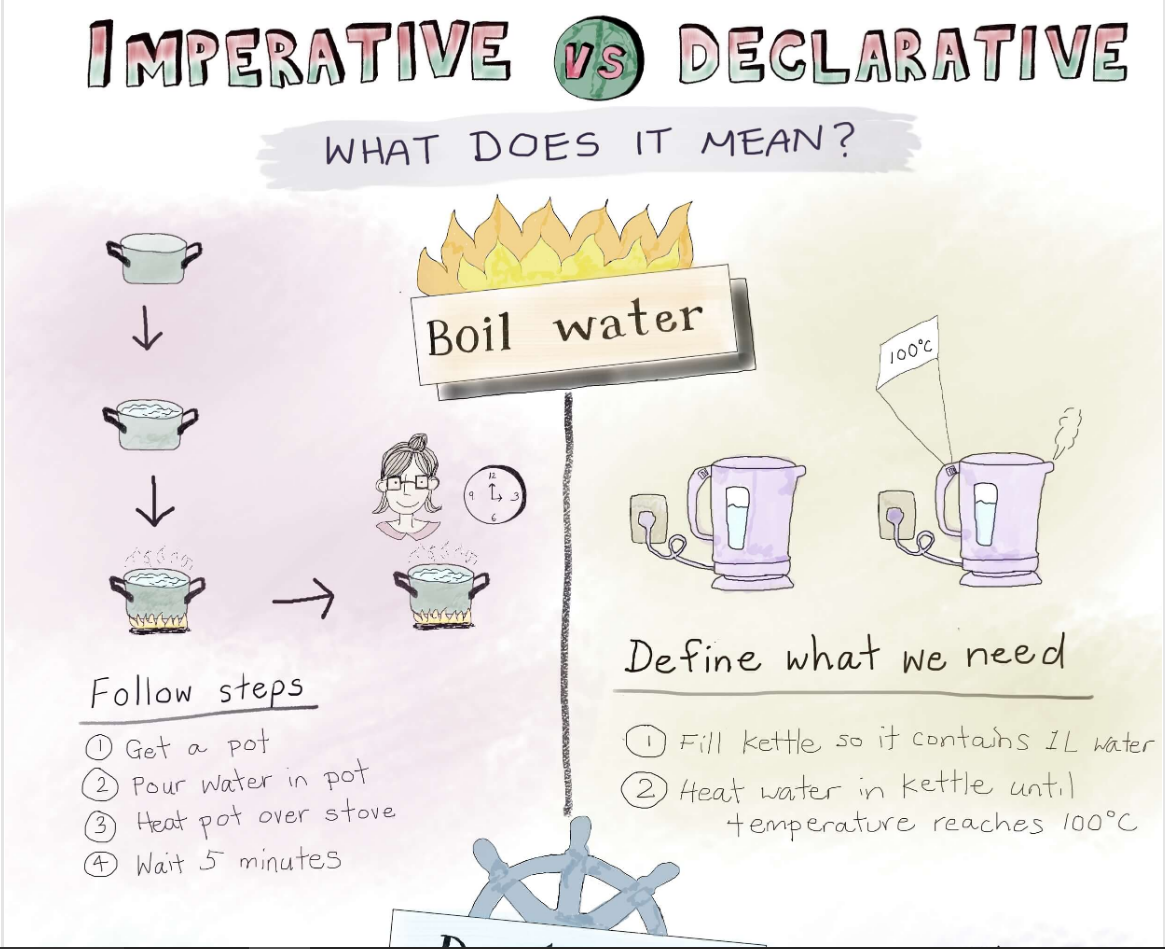 IMPERATIVE VS DECLARATIVE
WHAT DOES IT MEAN?
Boil water
100°C
12
9 3
6
Follow steps
1 Get a pot
2 Pour water in pot
3 Heat pot over stove
4 Wait 5 minutes
Define what we need
1 Fill kettle so it contains 1L water
2 Heat water in kettle until
temperature reaches 100°C